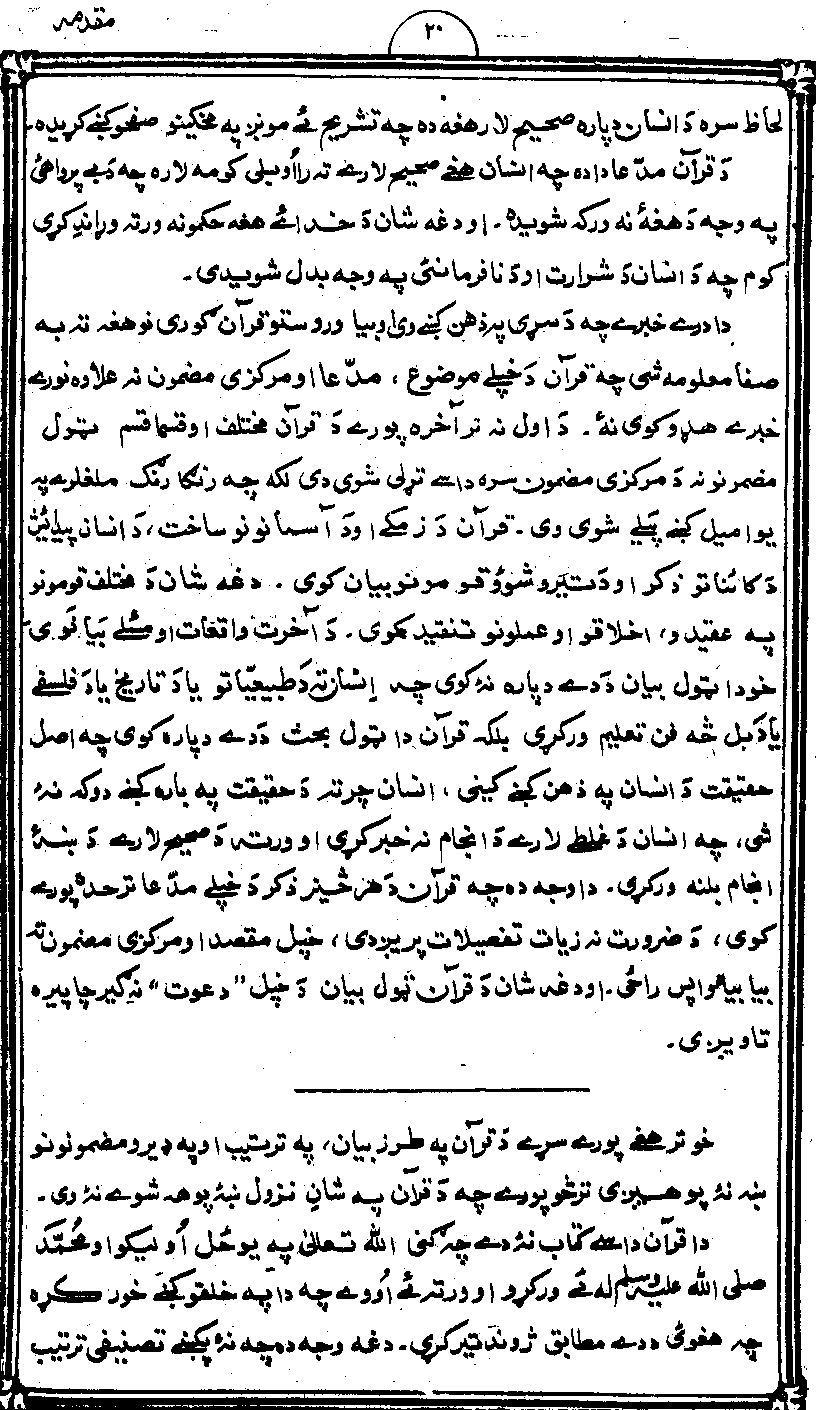 مقدمه
۲۰
لحاظ سره دَ انسان دپاره صحیح لار هغه ده چه تشریح ئے مونږ په مخکینو صفحو کښے کړیده۔
دَ قرآن مدّعا دا ده چه انسان هغے صحیح لارے ته راأوبلی کومه لاره چه دَ بے پرواهئی
په وجه دَ هغهٔ نه ورکه شویده۔ او دغه شان دَ خدائے هغه حکمونه ورته وړاندِ کړی
کوم چه دَ انسان دَ شرارت او دَ نافرمانئی په وجه بدل شویدی۔
دا درے خبرے چه دَ سړی په ذهن کښے وی او بیا وروستو قرآن ګوری نو هغه ته به
صفا معلومه شی چه قرآن دَ خپلے موضوع، مدّعا او مرکزی مضمون نه علاوه نورے
خبرے هډو کوی نهٔ۔ دَ اول نه تر آخره پورے دَ قرآن مختلف او قسما قسم ټول
مضمونونه دَ مرکزی مضمون سره داسے تړلی شوی دی لکه چه رنګا رنګ ملغلرے په
یو امیل کښے پیلے شوی وی۔ قرآن دَ زمکے او دَ آسمانونو ساخت، دَ انسان پیدائیښ
دَ کائناتو ذکر او دَ تیرو شوؤ قومونو بیان کوی۔ دغه شان دَ مختلف قومونو
په عقیدو، اخلاقو او عملونو تنقید کوی۔ دَ آخرت واقعات او مسٔلے بیانوی
خو دا ټول بیان دَدے دپاره نهٔ کوی چه انسان ته دَ طبیعیاتو یا دَ تاریخ یا دَ فلسفے
یا دَ بل څه فن تعلیم ورکړی بلکه قرآن دا ټول بحث دَدے دپاره کوی چه اصل
حقیقت دَ انسان په ذهن کښے کینی، انسان چرته دَ حقیقت په باره کښے دوکه نهٔ
شی، چه انسان دَ غلطے لارے دَ انجام نه خبر کړی او ورته دَ صحیح لارے دَ ښهٔ
انجام بلنه ورکړی۔ دا وجه ده چه قرآن دَ هر څیز ذکر دَ خپلے مدّعا تر حده پورے
کوی، دَ ضرورت نه زیات تفصیلات پریږدی، خپل مقصد او مرکزی مضمون ته
بیا بیا واپس راځی۔ او دغه شان دَ قرآن ټول بیان دَ خپل "دعوت" نه ګیر چاپیره
تاویږی۔
خو تر هغے پورے سړے دَ قرآن په طرز بیان، په ترتیب او په ډیرو مضمونونو
ښه نهٔ پوهیږی تر څو پورے چه دَ قرآن په شانِ نزول ښهٔ پوهه شوے نهٔ وی۔
دا قرآن داسے کتاب نهٔ دے چه ګنی الله تعالیٰ په یو ځل أولیکو او محُمّد
صلی الله علیه وسلم له ئے ورکړو او ورته ئے أووے چه دا په خلقو کښے خور کړه
چه هغوئی ددے مطابق ژوند تیر کړی۔ دغه وجه ده چه نهٔ پکښے تصنیفی ترتیب